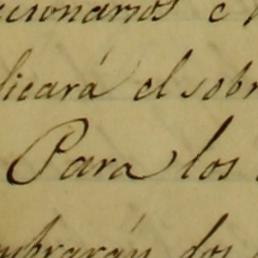 cionarios e
licará el sobr
Para los
mbrarán dos